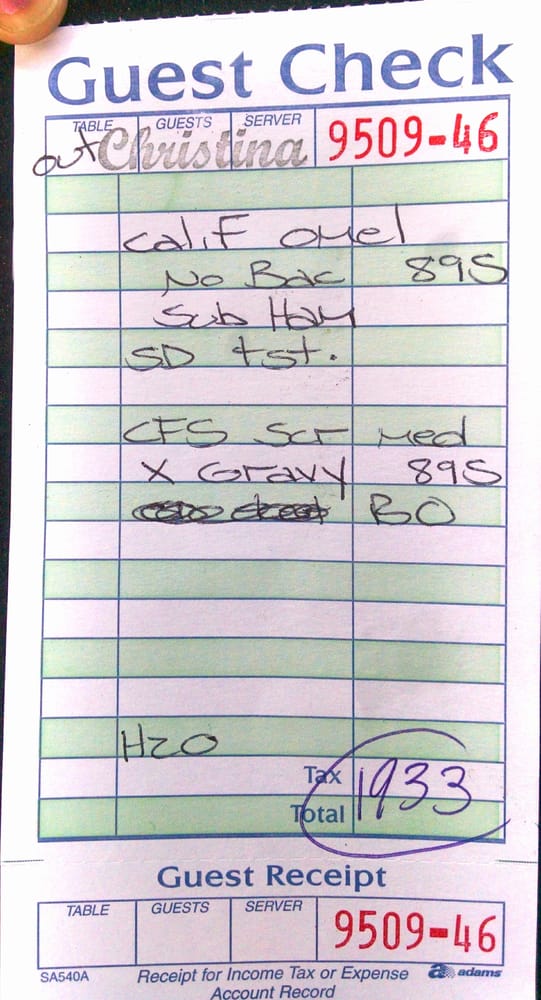 Guest Check
TABLE GUESTS SERVER
out Christina 9509-46
Calif omel
No Bac 895
Sub Ham
SD tst.
CFS Scr Med
X Gravy 895
BO
H2O
Tax 1933
Total
Guest Receipt
TABLE GUESTS SERVER
9509-46
SA540A Receipt for Income Tax or Expense adams
Account Record